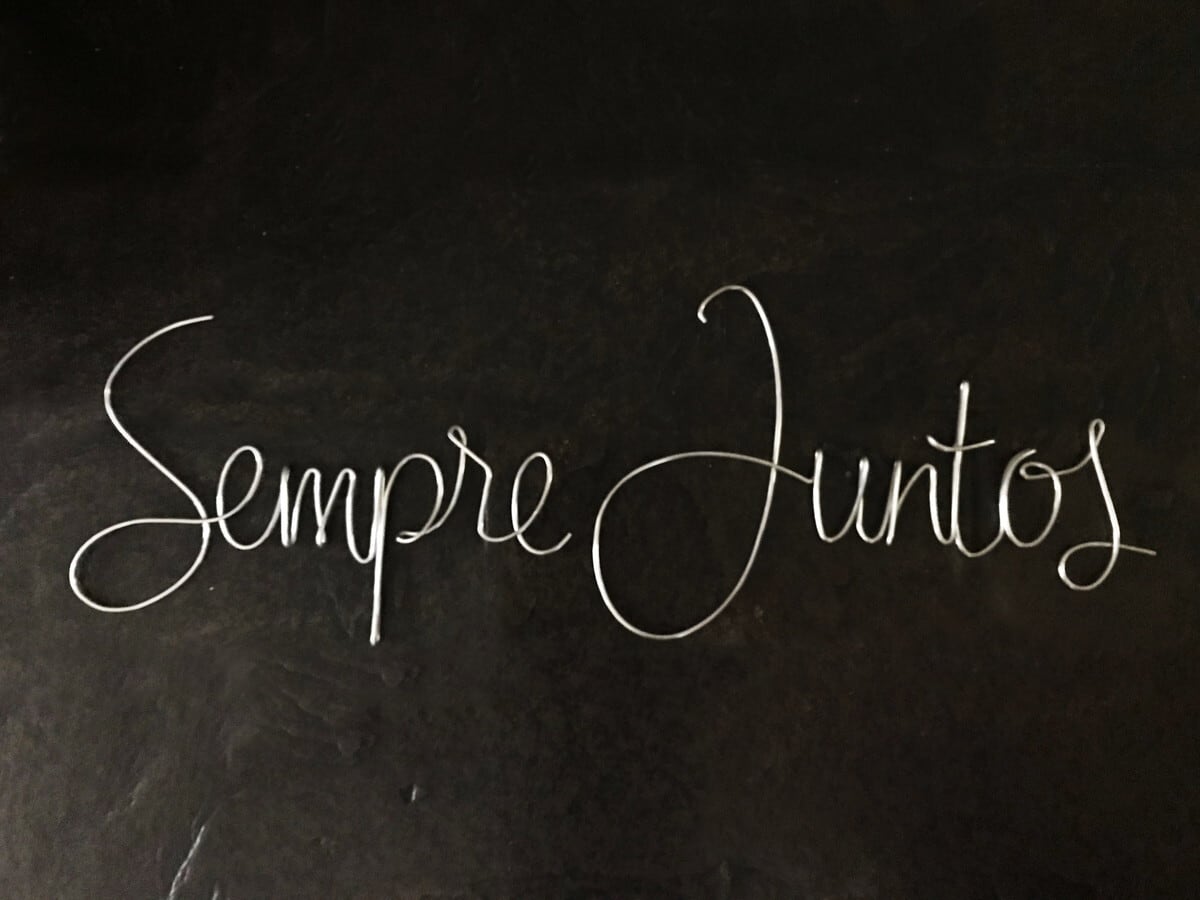 Sempre Juntos